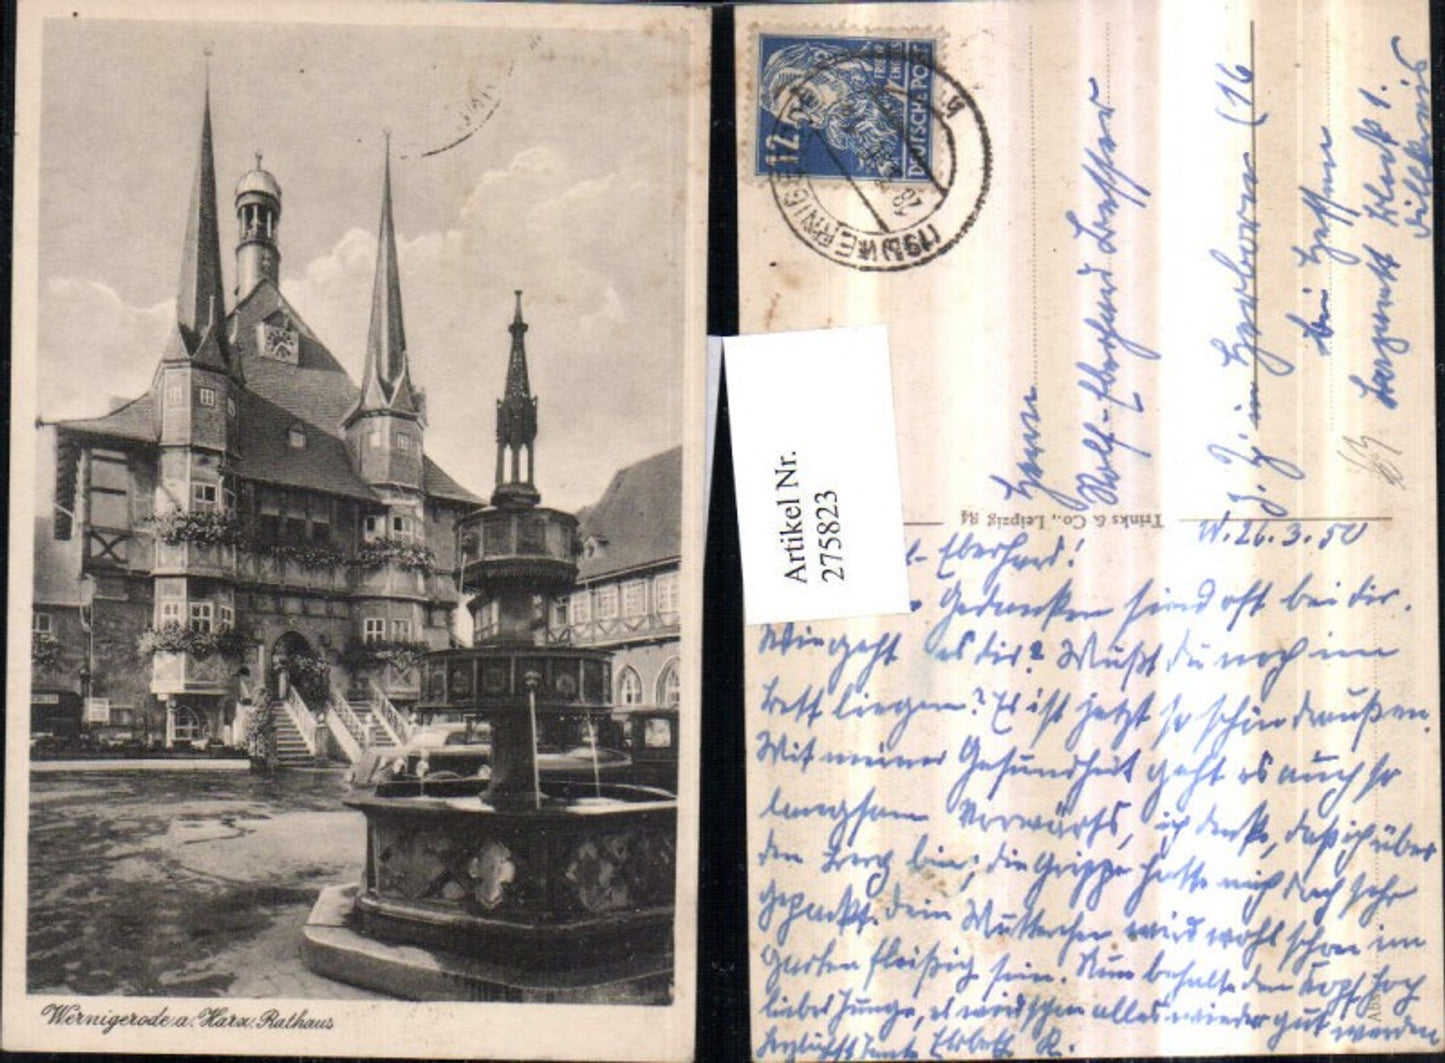 Wernigerode a. Harz. Rathaus
12
DEUTSCHE POST
(19) WERNIGE
Artikel Nr.
2758 23
Herrn
Rolf-Eberhard
z. Zt. in Herborn (16
bei Hessen
Trinks & Co., Leipzig
W. 26.3.50
Eberhard!
Gedanken sind oft bei dir.
Wie geht es dir? Mußt du noch im
Bett liegen? Es ist jetzt so schön draußen.
Mit meiner Gesundheit geht es auch so
langsam Vorwärts, ich denke, daß ich über
den Berg bin; die Grippe hatte mich doch sehr
gepackt. Dein Mutterchen wird wohl schon im
Garten fleißig sein. Nun behalte den Kopf hoch
lieber Junge, es wird schon alles wieder gut werden
herzlichst Tante Elsbeth R.